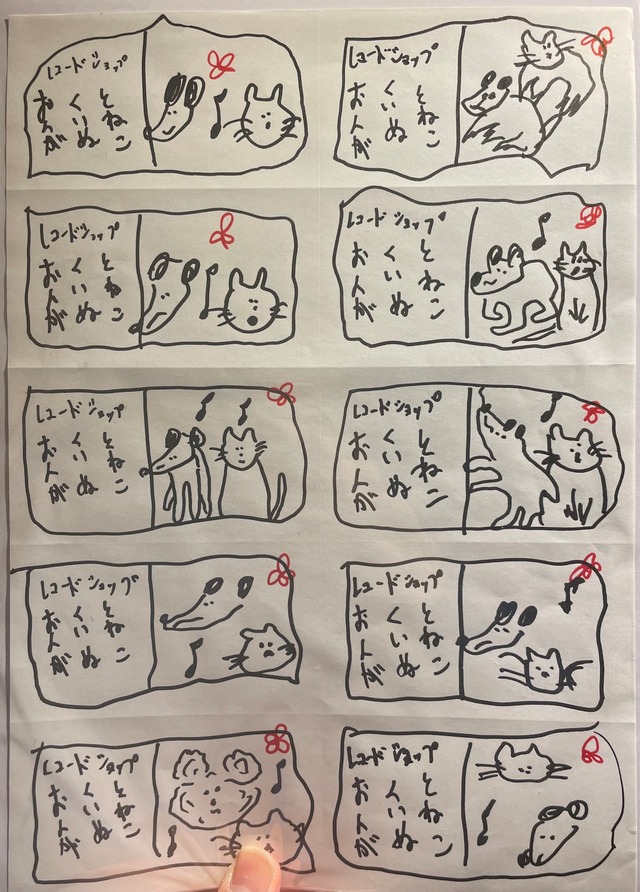 レコードショップ
おんが
くいぬ
とねこ
レコードショップ
おんが
くいぬ
とねこ
レコードショップ
おんが
くいぬ
とねこ
レコードショップ
おんが
くいぬ
とねこ
レコードショップ
おんが
くいぬ
とねこ
レコードショップ
おんが
くいぬ
とねこ
レコードショップ
おんが
くいぬ
とねこ
レコードショップ
おんが
くいぬ
とねこ
レコードショップ
おんが
くいぬ
とねこ
レコードショップ
おんが
くいぬ
とねこ